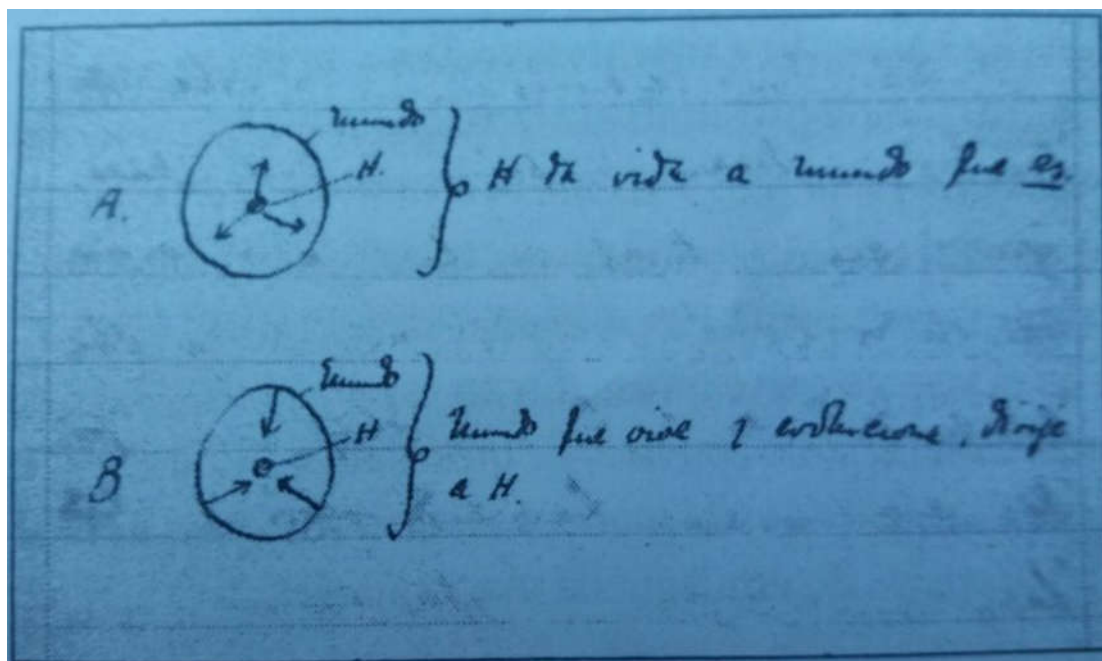 mundo
H.
A.
H da vida a mundo que es.
mundo
H
B
mundo que vive y evoluciona, dirige
a H.